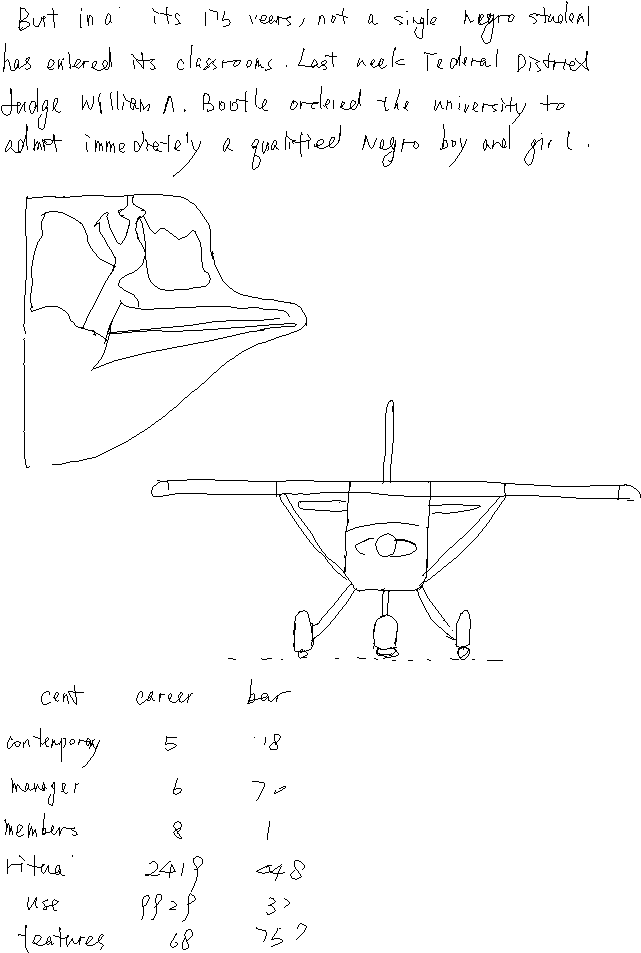 But in a its 175 years, not a single Negro student
has entered its classrooms. Last week Federal District
Judge William A. Bootle ordered the university to
admit immediately a qualified Negro boy and girl.
cent career bar
contemporary 5 18
manager 6 70
members 8 1
ritua 2419 448
use 9929 37
features 68 757